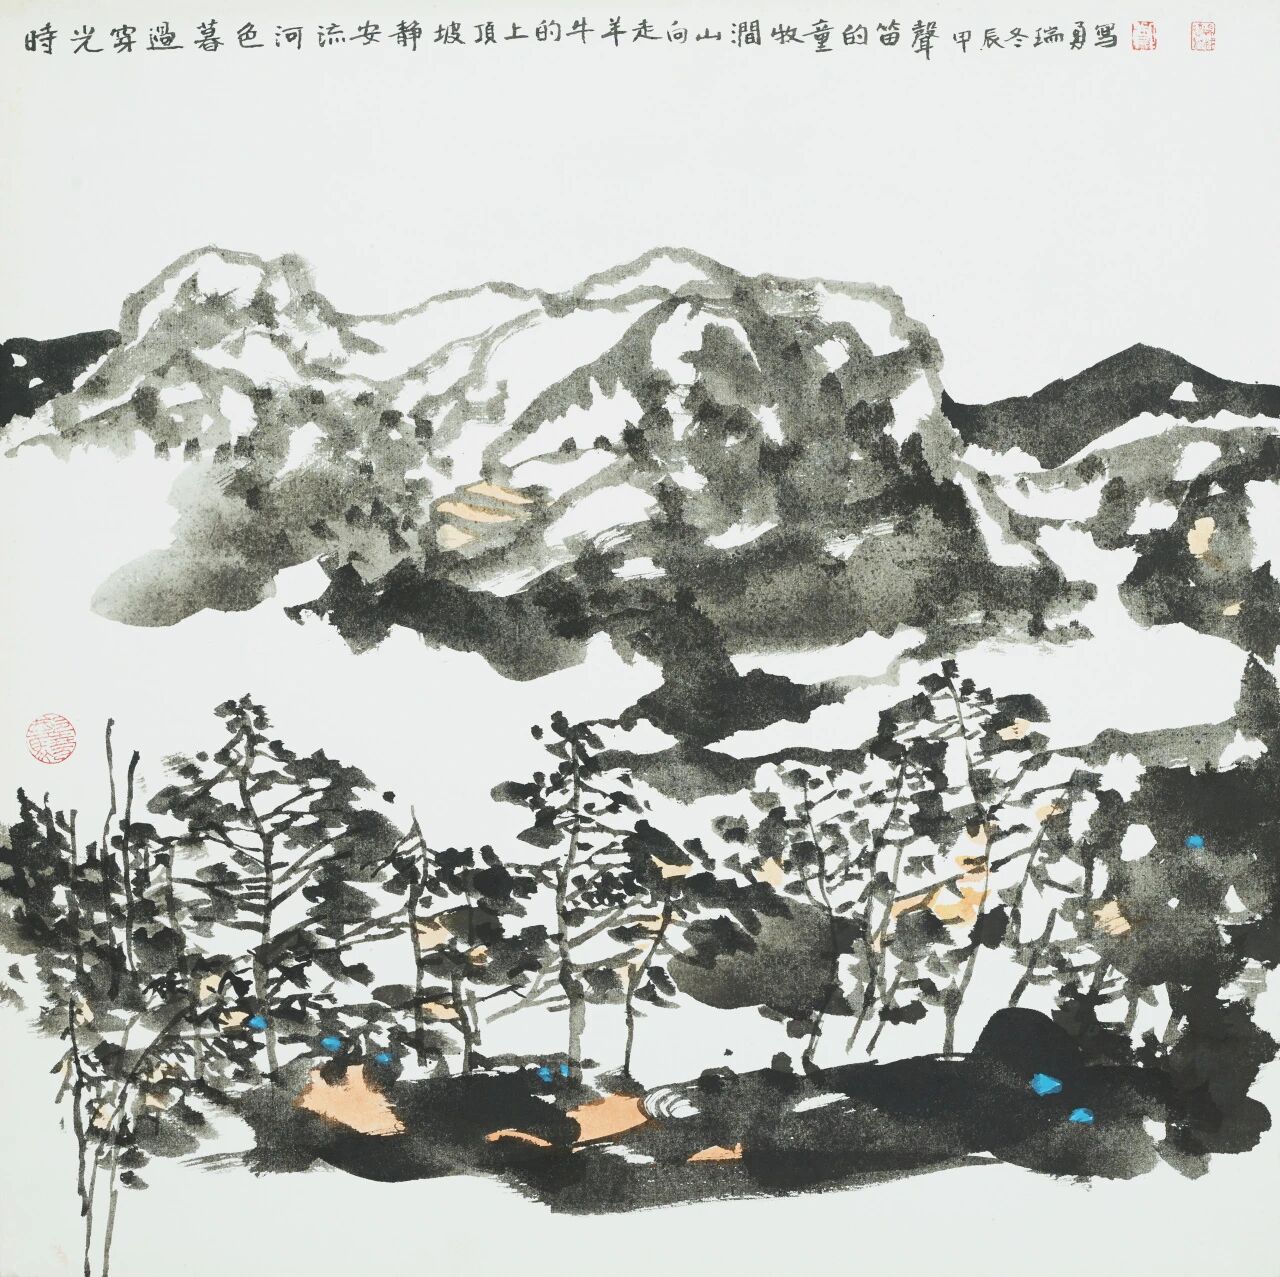 時光穿過暮色河流安静坡頂上的牛羊走向山澗牧童的笛聲 甲辰冬瑞勇寫